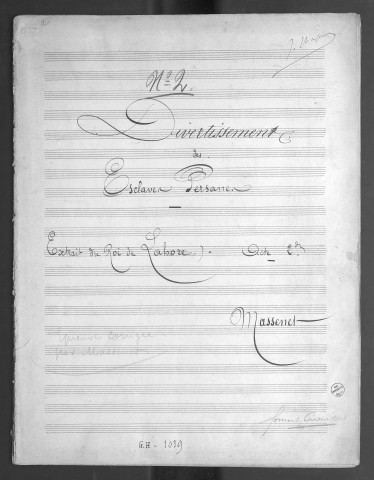 Nº 2.
Divertissement
des
Esclaves Persanes
Extrait du Roi de Lahore). Acte 2e
Massenet
épreuve corrigée
par
G.H - 1039